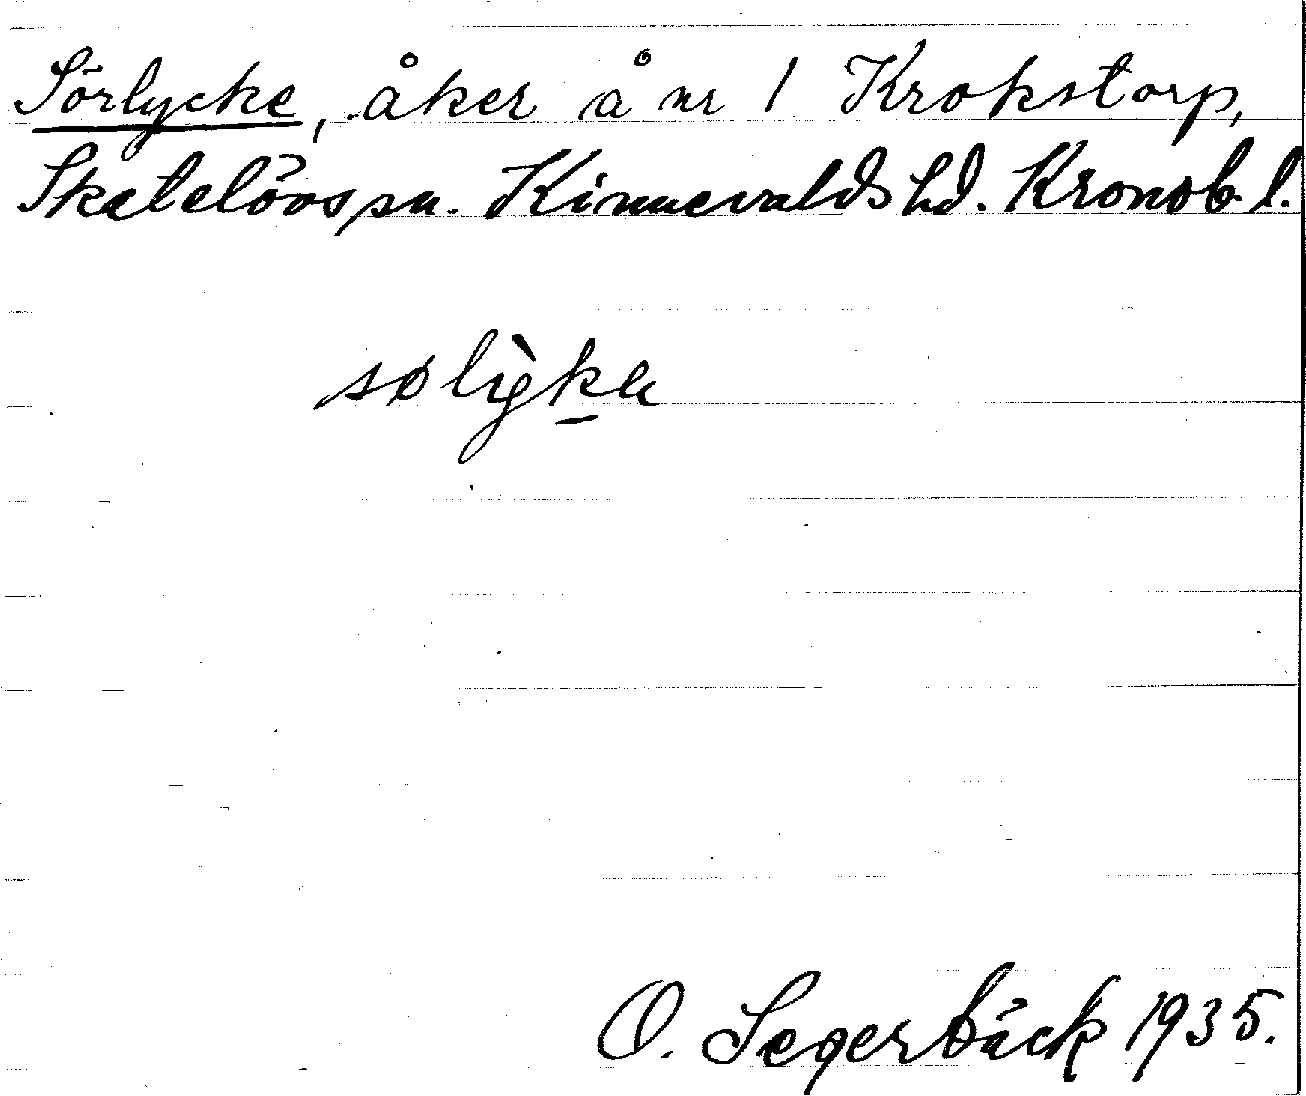 Sörlycke, åker å nr 1 Krokstorp,
Skatelövs sn. Kinnevalds hd. Kronob. l.
sølỳkɐ
O. Segerbäck 1935.